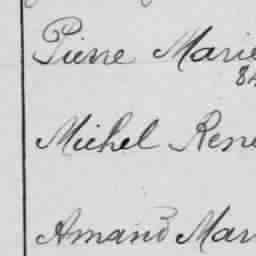 Pierre Marie
Michel René
Amand Mar